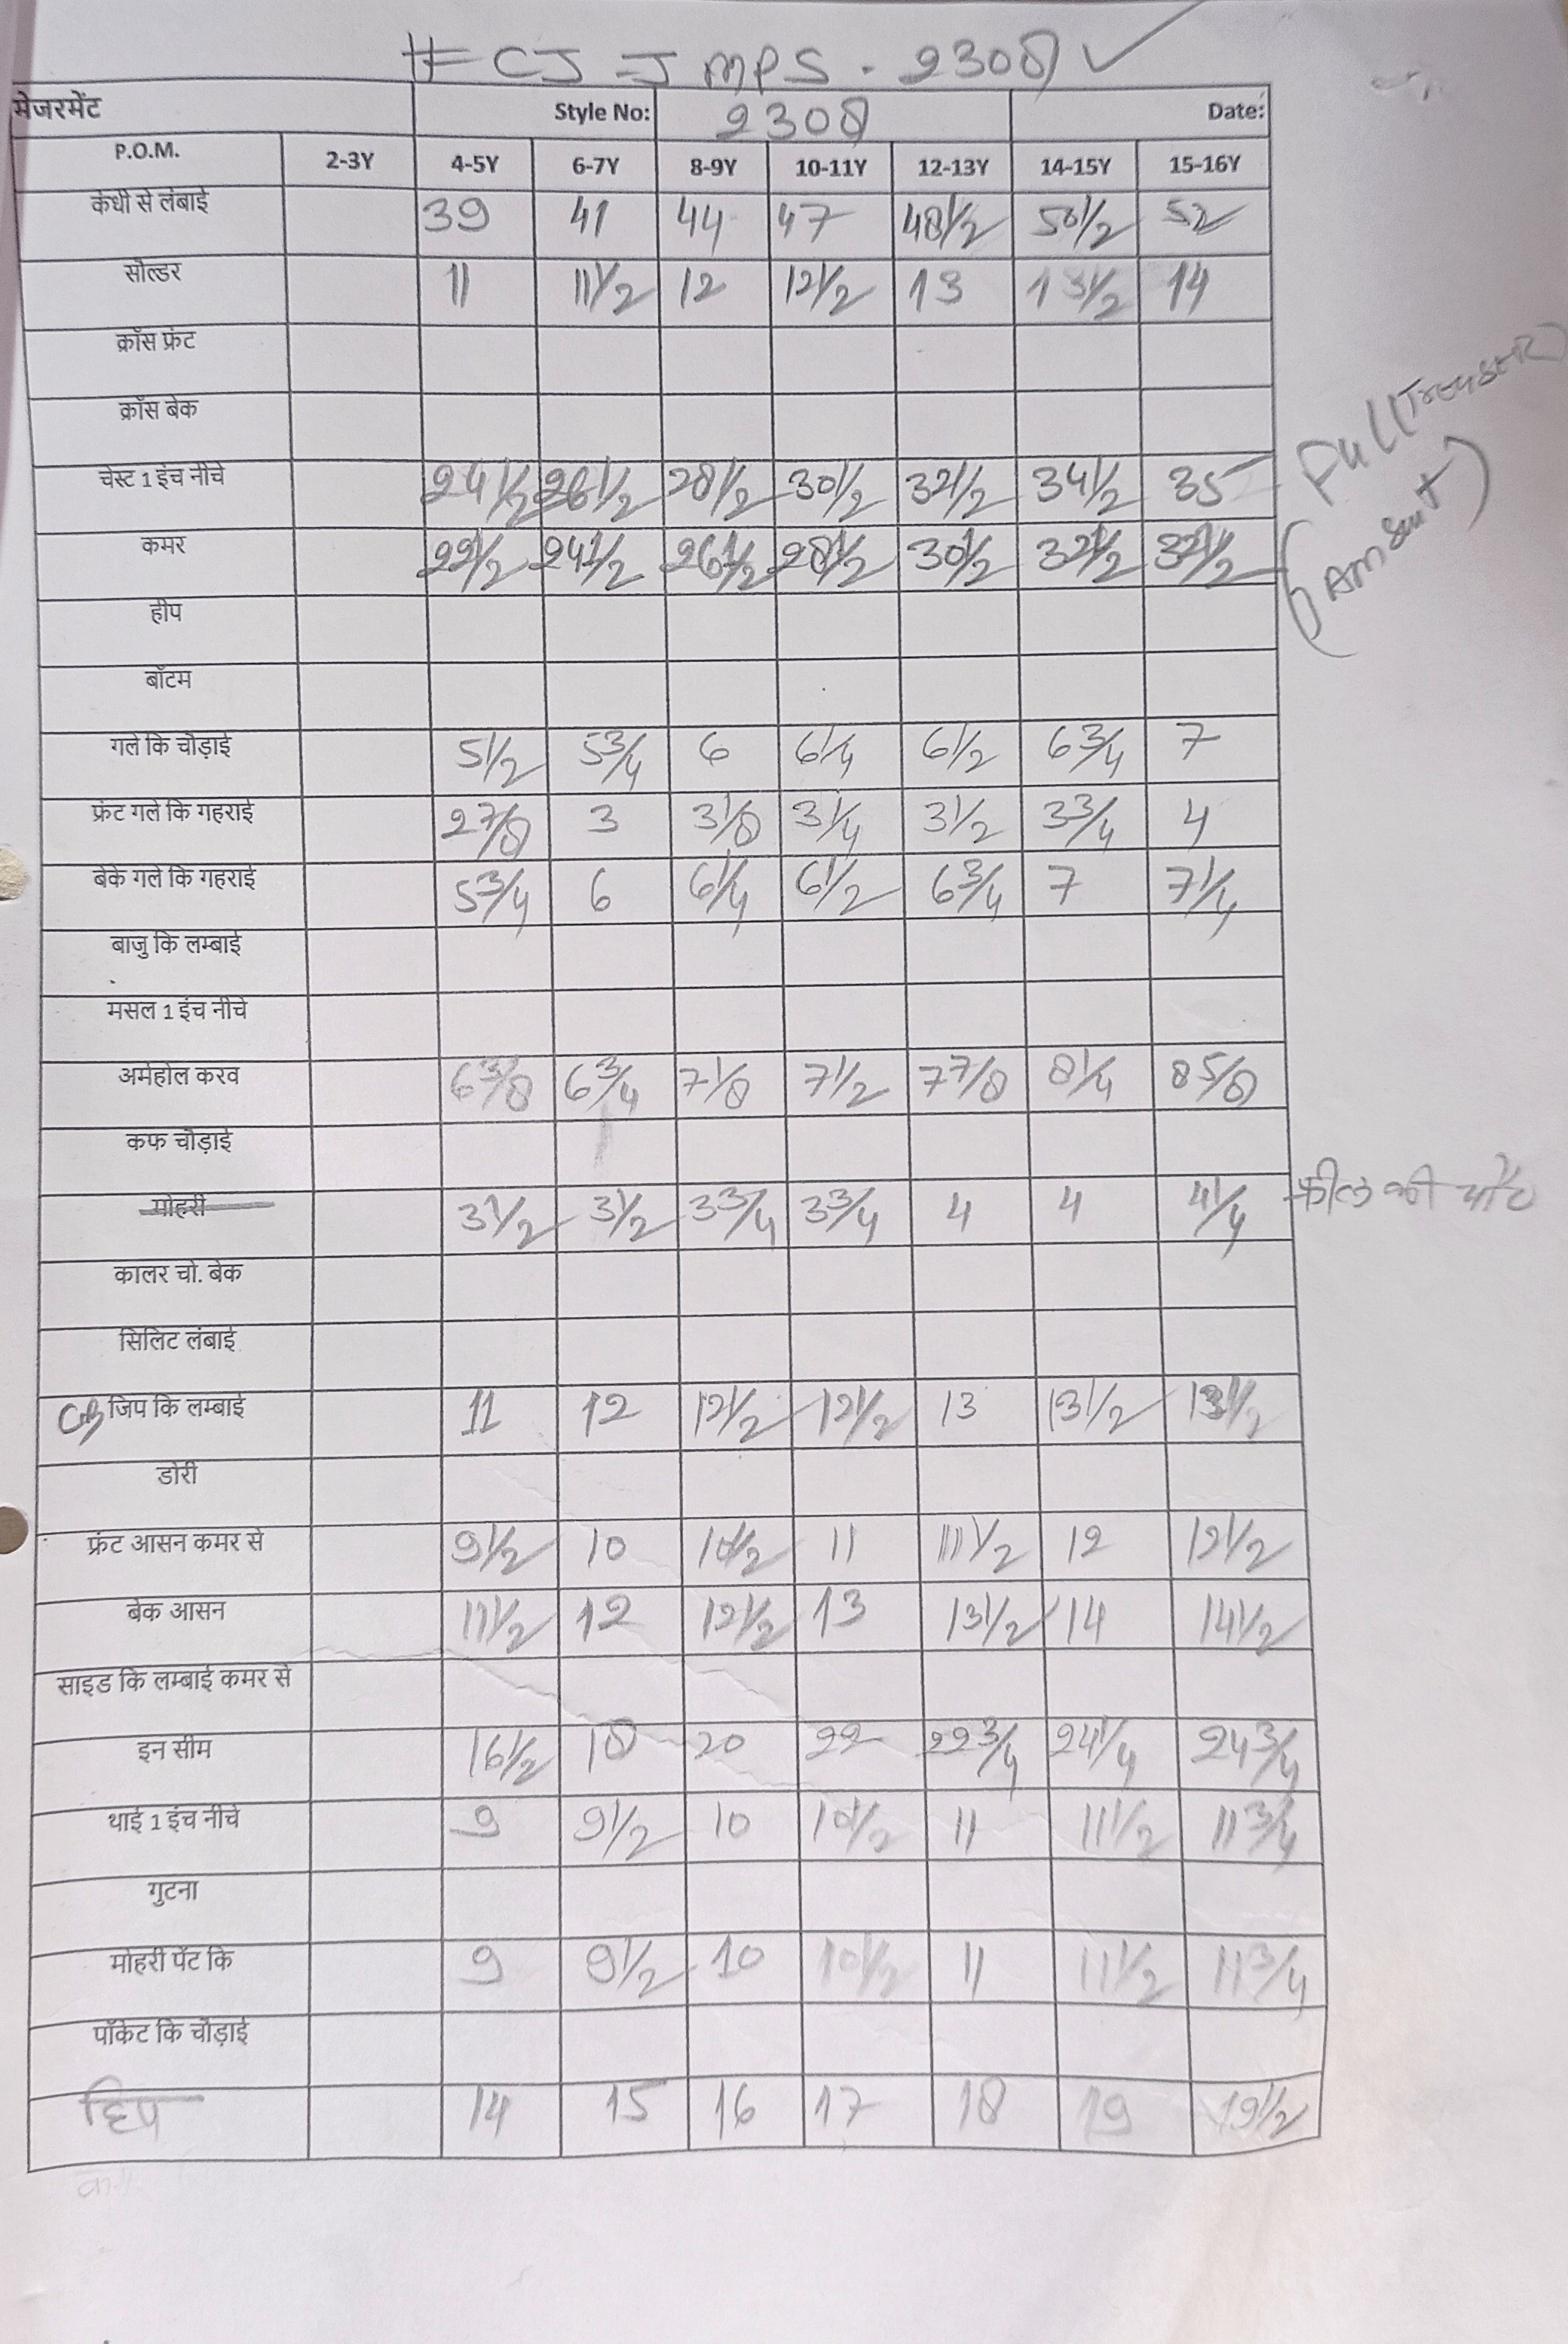 # CJ-JMPS-2308 ✓
मेजरमेंट Style No: 2308 Date:
P.O.M. 2-3Y 4-5Y 6-7Y 8-9Y 10-11Y 12-13Y 14-15Y 15-16Y
कंधी से लंबाई 39 41 44 47 48 1/2 50 1/2 52
सोल्डर 11 11 1/2 12 12 1/2 13 13 1/2 14
क्रॉस फ्रंट
क्रॉस बेक
चेस्ट 1 इंच नीचे 24 1/2 26 1/2 28 1/2 30 1/2 32 1/2 34 1/2 35 Full
कमर 22 1/2 24 1/2 26 1/2 28 1/2 30 1/2 32 1/2 32 1/2
हीप
बॉटम
गले कि चौड़ाई 5 1/2 5 3/4 6 6 1/4 6 1/2 6 3/4 7
फ्रंट गले कि गहराई 2 7/8 3 3 1/8 3 1/4 3 1/2 3 3/4 4
बेके गले कि गहराई 5 3/4 6 6 1/4 6 1/2 6 3/4 7 7 1/4
बाजु कि लम्बाई
मसल 1 इंच नीचे
अर्महोल करव 6 3/8 6 3/4 7 1/8 7 1/2 7 7/8 8 1/4 8 5/8
कफ चौड़ाई
मोहरी 3 1/2 3 1/2 3 3/4 3 3/4 4 4 4 1/4 फील की चौ०
कालर चो. बेक
सिलिट लंबाई
CB जिप कि लम्बाई 11 12 12 1/2 12 1/2 13 13 1/2 13 1/2
डोरी
फ्रंट आसन कमर से 9 1/2 10 10 1/2 11 11 1/2 12 12 1/2
बेक आसन 11 1/2 12 12 1/2 13 13 1/2 14 14 1/2
साइड कि लम्बाई कमर से
इन सीम 16 1/2 18 20 22 22 3/4 24 1/4 24 3/4
थाई 1 इंच नीचे 9 9 1/2 10 10 1/2 11 11 1/2 11 3/4
गुटना
मोहरी पेंट कि 9 9 1/2 10 10 1/2 11 11 1/2 11 3/4
पॉकेट कि चौड़ाई
हिप 14 15 16 17 18 19 19 1/2